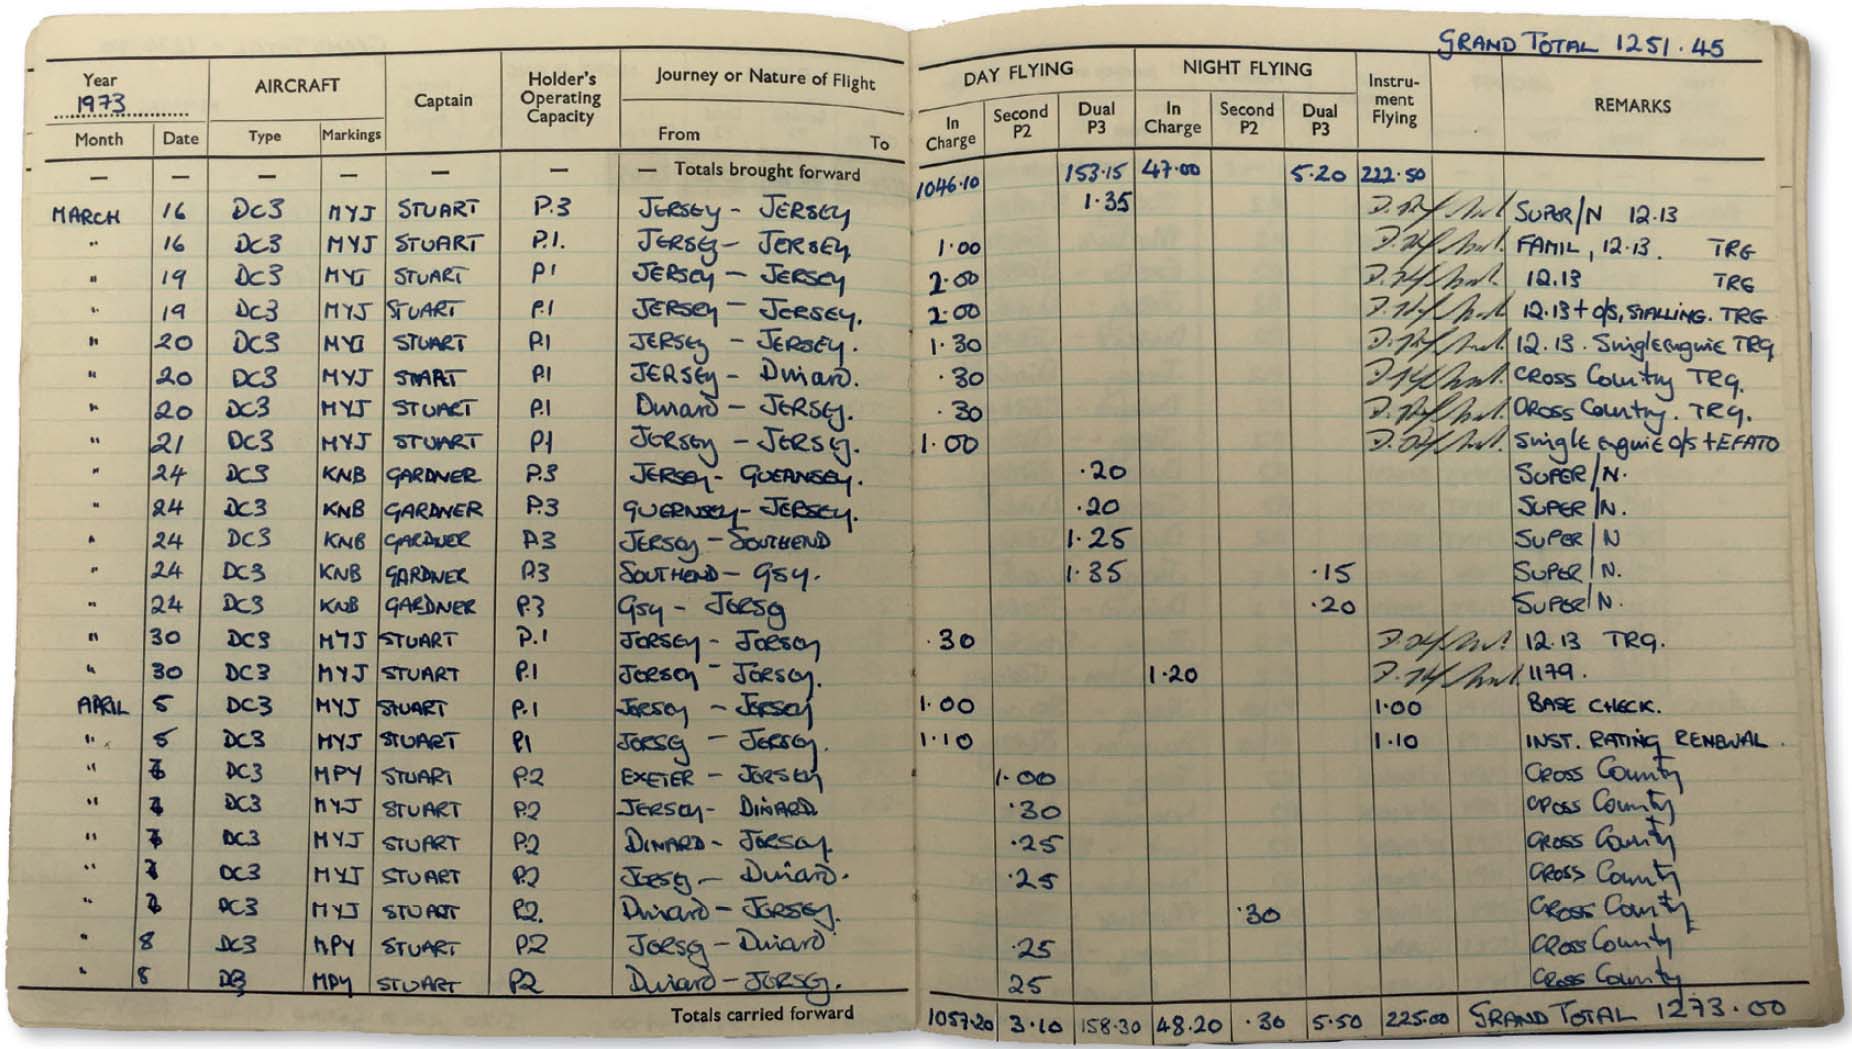 GRAND TOTAL 1251.45
Year 1973 AIRCRAFT Captain Holder's Operating Capacity Journey or Nature of Flight DAY FLYING NIGHT FLYING Instru-ment Flying REMARKS
Month Date Type Markings From To In Charge Second P2 Dual P3 In Charge Second P2 Dual P3
— — — — — — — Totals brought forward 1046.10 153.15 47.00 5.20 222.50
MARCH 16 DC3 MYJ STUART P.3 JERSEY - JERSEY 1.35 SUPER/N 12.13
" 16 DC3 MYJ STUART P.1. JERSEY - JERSEY 1.00 FAMIL, 12.13. TRG
" 19 DC3 MYJ STUART P1 JERSEY - JERSEY 2.00 12.13 TRG
" 19 DC3 MYJ STUART P.1 JERSEY - JERSEY. 2.00 12.13 + o/s, STALLING. TRG
" 20 DC3 MYJ STUART P.1 JERSEY - JERSEY. 1.30 12.13. Single engine TRG
" 20 DC3 MYJ START P.1 JERSEY - Dinard. .30 CROSS Country TRG.
" 20 DC3 MYJ STUART P.1 Dinard - JERSEY. .30 CROSS Country. TRG.
" 21 DC3 MYJ STUART P1 JERSEY - JERSEY. 1.00 Single engine o/s + EFATO
" 24 DC3 KNB GARDNER P.3 JERSEY - GUERNSEY. .20 SUPER/N.
" 24 DC3 KNB GARDNER P.3 GUERNSEY - JERSEY. .20 SUPER/N.
" 24 DC3 KNB GARDNER P.3 JERSEY - SOUTHEND 1.25 SUPER/N
" 24 DC3 KNB GARDNER P.3 SOUTHEND - GSY. 1.35 .15 SUPER/N.
" 24 DC3 KNB GARDNER P.3 GSY - JERSEY .20 SUPER/N.
" 30 DC3 MYJ STUART P.1 JERSEY - JERSEY .30 12.13 TRG.
" 30 DC3 MYJ STUART P.1 JERSEY - JERSEY. 1.20 1179.
APRIL 5 DC3 MYJ STUART P.1 JERSEY - JERSEY 1.00 1.00 BASE CHECK.
" 5 DC3 MYJ STUART P1 JERSEY - JERSEY. 1.10 1.10 INST. RATING RENEWAL.
" DC3 MPY STUART P.2 EXETER - JERSEY 1.00 CROSS County
" DC3 MYJ STUART P.2 JERSEY - DINARD .30 CROSS County
" DC3 MYJ STUART P.2 DINARD - JERSEY. .25 CROSS County
" DC3 MYJ STUART P.2 JERSEY - Dinard. .25 CROSS County
" DC3 MYJ STUART P2. Dinard - JERSEY. .30 CROSS County
" 8 DC3 MPY STUART P2 JERSEY - Dinard .25 CROSS County
" 8 D3 MPY STUART P2 Dinard - JERSEY. 25 CROSS County
Totals carried forward 1057.20 3.10 158.30 48.20 .30 5.50 225.00 GRAND TOTAL 1273.00